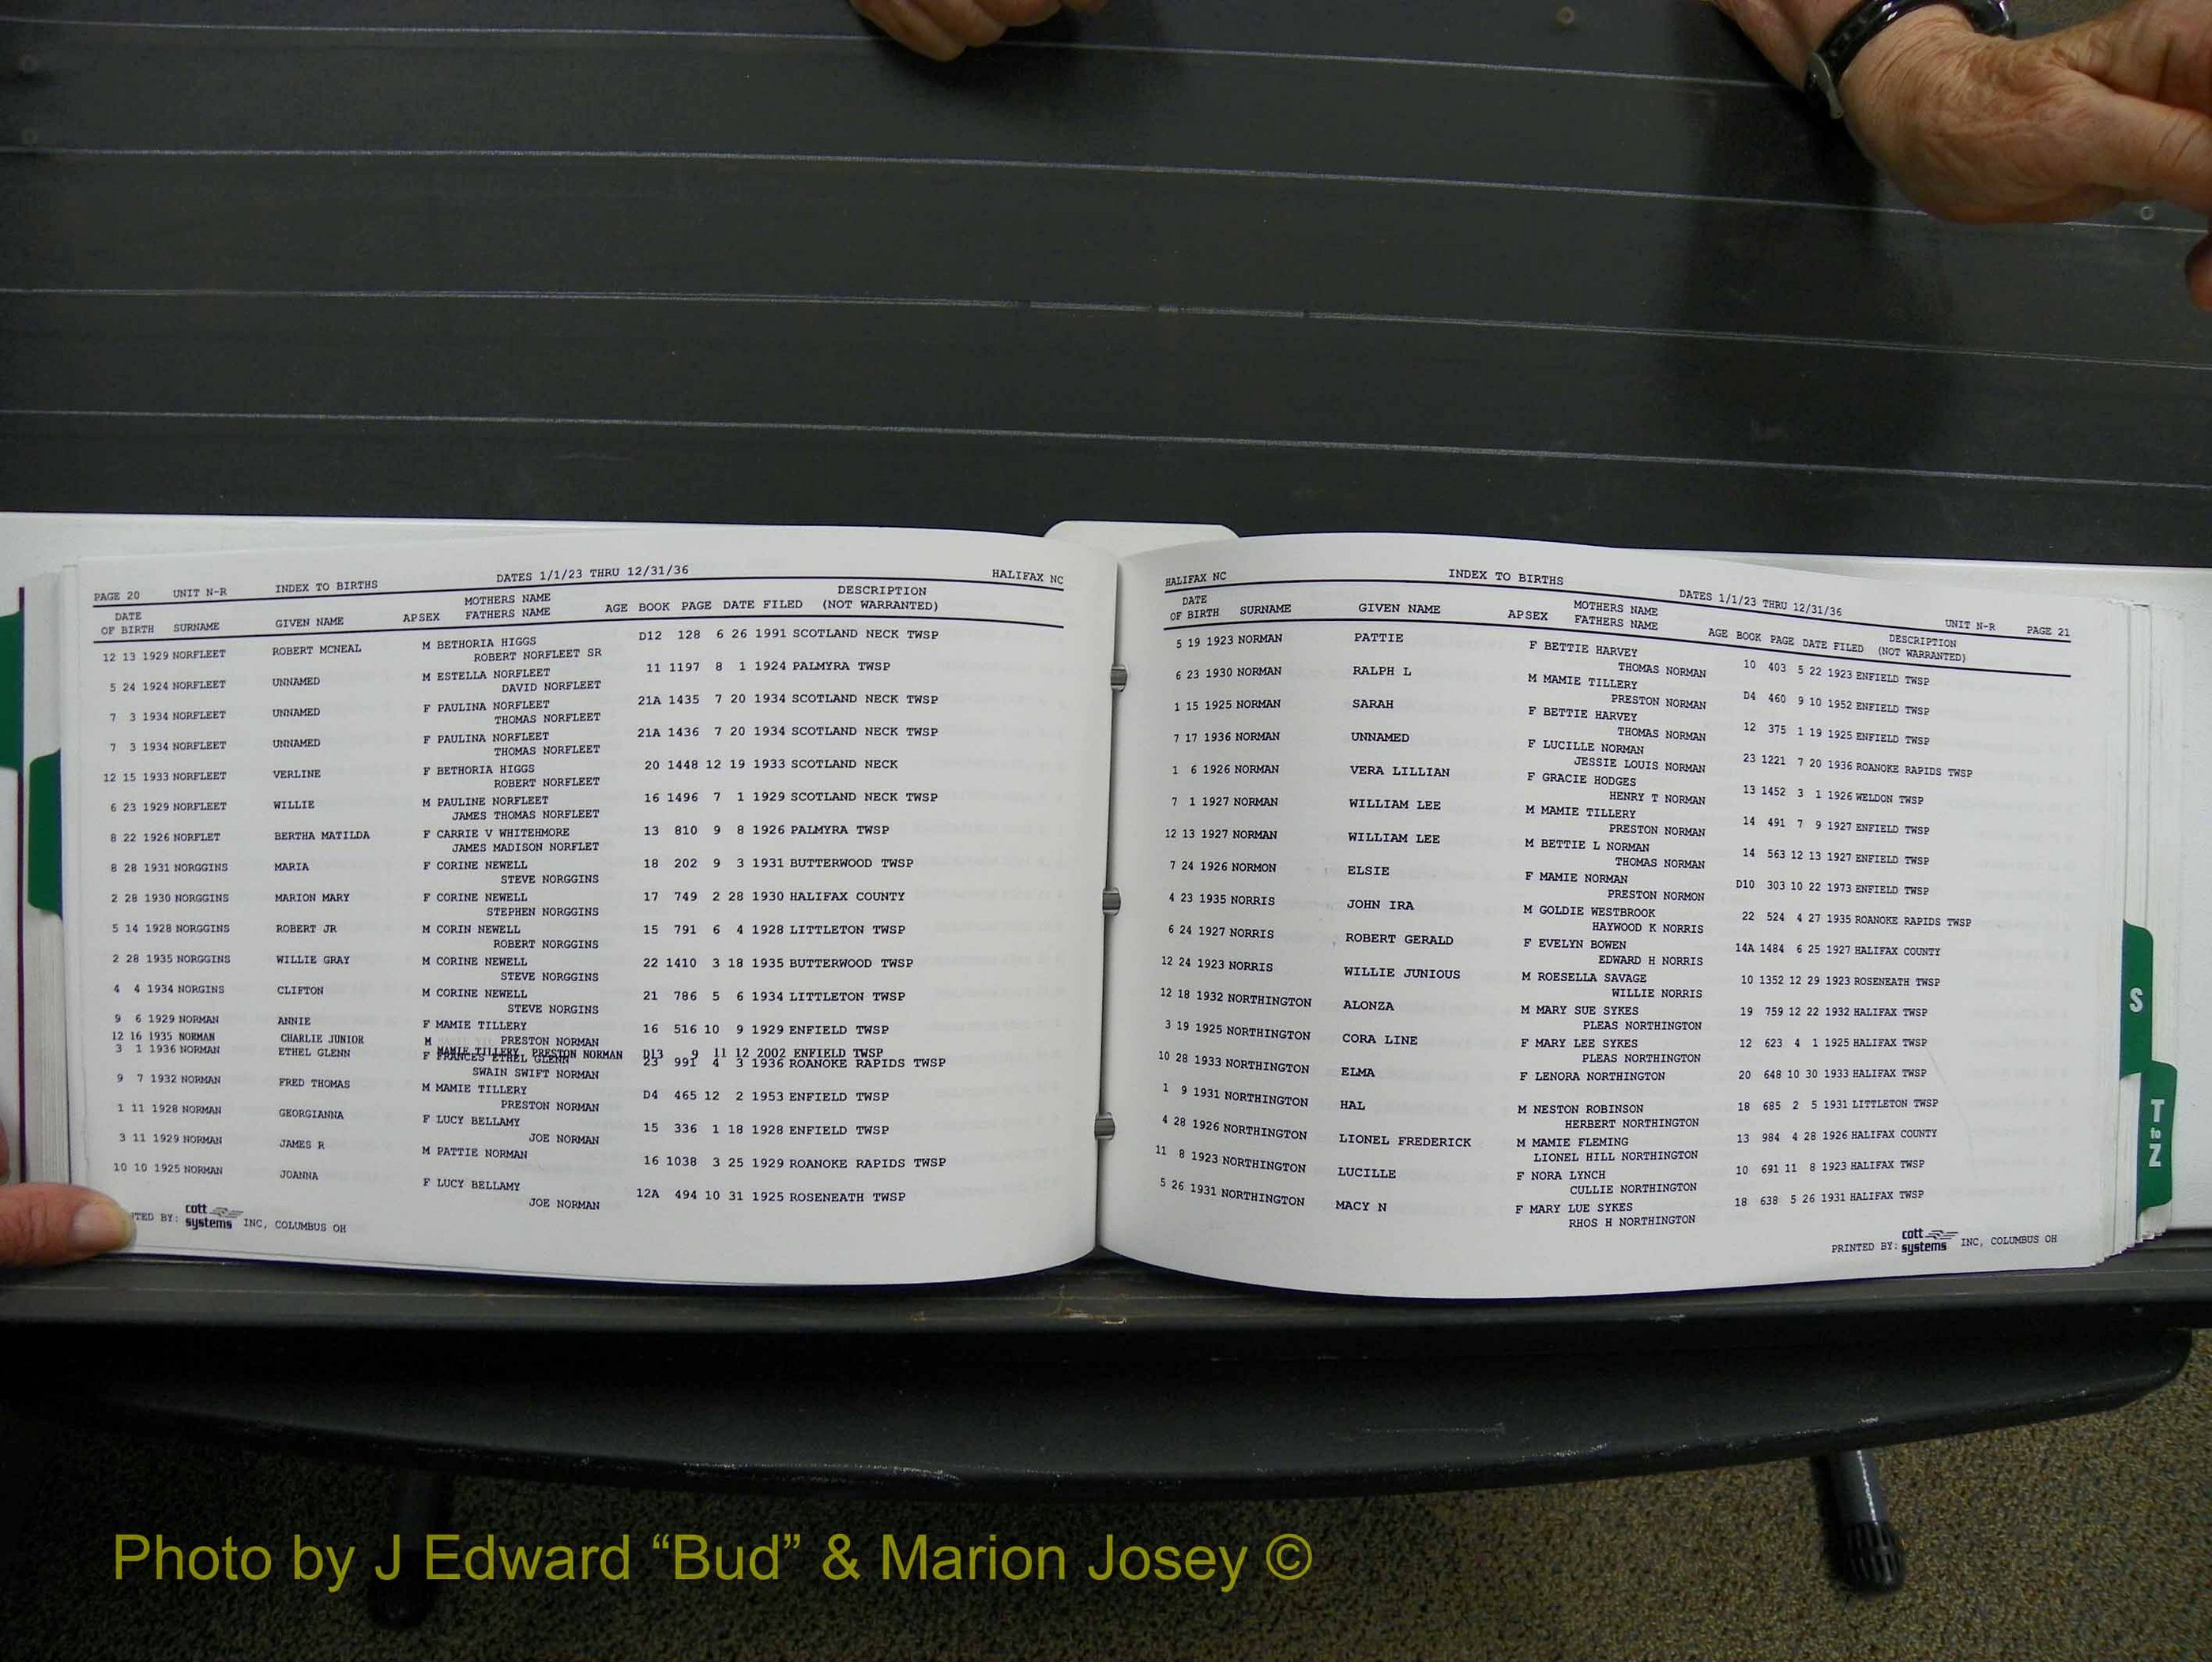 PAGE 20 UNIT N-R INDEX TO BIRTHS DATES 1/1/23 THRU 12/31/36 HALIFAX NC
DATE MOTHERS NAME DESCRIPTION
OF BIRTH SURNAME GIVEN NAME APSEX FATHERS NAME AGE BOOK PAGE DATE FILED (NOT WARRANTED)
12 13 1929 NORFLEET ROBERT MCNEAL M BETHORIA HIGGS D12 128 6 26 1991 SCOTLAND NECK TWSP
ROBERT NORFLEET SR
5 24 1924 NORFLEET UNNAMED M ESTELLA NORFLEET 11 1197 8 1 1924 PALMYRA TWSP
DAVID NORFLEET
7 3 1934 NORFLEET UNNAMED F PAULINA NORFLEET 21A 1435 7 20 1934 SCOTLAND NECK TWSP
THOMAS NORFLEET
7 3 1934 NORFLEET UNNAMED F PAULINA NORFLEET 21A 1436 7 20 1934 SCOTLAND NECK TWSP
THOMAS NORFLEET
12 15 1933 NORFLEET VERLINE F BETHORIA HIGGS 20 1448 12 19 1933 SCOTLAND NECK
ROBERT NORFLEET
6 23 1929 NORFLEET WILLIE M PAULINE NORFLEET 16 1496 7 1 1929 SCOTLAND NECK TWSP
JAMES THOMAS NORFLEET
8 22 1926 NORFLET BERTHA MATILDA F CARRIE V WHITEHMORE 13 810 9 8 1926 PALMYRA TWSP
JAMES MADISON NORFLET
8 28 1931 NORGGINS MARIA F CORINE NEWELL 18 202 9 3 1931 BUTTERWOOD TWSP
STEVE NORGGINS
2 28 1930 NORGGINS MARION MARY F CORINE NEWELL 17 749 2 28 1930 HALIFAX COUNTY
STEPHEN NORGGINS
5 14 1928 NORGGINS ROBERT JR M CORIN NEWELL 15 791 6 4 1928 LITTLETON TWSP
ROBERT NORGGINS
2 28 1935 NORGGINS WILLIE GRAY M CORINE NEWELL 22 1410 3 18 1935 BUTTERWOOD TWSP
STEVE NORGGINS
4 4 1934 NORGINS CLIFTON M CORINE NEWELL 21 786 5 6 1934 LITTLETON TWSP
STEVE NORGINS
9 6 1929 NORMAN ANNIE F MAMIE TILLERY 16 516 10 9 1929 ENFIELD TWSP
PRESTON NORMAN
12 16 1935 NORMAN CHARLIE JUNIOR M MAMIE TILLERY PRESTON NORMAN D13 9 11 12 2002 ENFIELD TWSP
3 1 1936 NORMAN ETHEL GLENN F FRANCES ETHEL GLENN 23 991 4 3 1936 ROANOKE RAPIDS TWSP
SWAIN SWIFT NORMAN
9 7 1932 NORMAN FRED THOMAS M MAMIE TILLERY D4 465 12 2 1953 ENFIELD TWSP
PRESTON NORMAN
1 11 1928 NORMAN GEORGIANNA F LUCY BELLAMY 15 336 1 18 1928 ENFIELD TWSP
JOE NORMAN
3 11 1929 NORMAN JAMES R M PATTIE NORMAN 16 1038 3 25 1929 ROANOKE RAPIDS TWSP
10 10 1925 NORMAN JOANNA F LUCY BELLAMY 12A 494 10 31 1925 ROSENEATH TWSP
JOE NORMAN
TED BY: cott systems INC, COLUMBUS OH
HALIFAX NC INDEX TO BIRTHS DATES 1/1/23 THRU 12/31/36 UNIT N-R PAGE 21
DATE MOTHERS NAME DESCRIPTION
OF BIRTH SURNAME GIVEN NAME APSEX FATHERS NAME AGE BOOK PAGE DATE FILED (NOT WARRANTED)
5 19 1923 NORMAN PATTIE F BETTIE HARVEY 10 403 5 22 1923 ENFIELD TWSP
THOMAS NORMAN
6 23 1930 NORMAN RALPH L M MAMIE TILLERY D4 460 9 10 1952 ENFIELD TWSP
PRESTON NORMAN
1 15 1925 NORMAN SARAH F BETTIE HARVEY 12 375 1 19 1925 ENFIELD TWSP
THOMAS NORMAN
7 17 1936 NORMAN UNNAMED F LUCILLE NORMAN 23 1221 7 20 1936 ROANOKE RAPIDS TWSP
JESSIE LOUIS NORMAN
1 6 1926 NORMAN VERA LILLIAN F GRACIE HODGES 13 1452 3 1 1926 WELDON TWSP
HENRY T NORMAN
7 1 1927 NORMAN WILLIAM LEE M MAMIE TILLERY 14 491 7 9 1927 ENFIELD TWSP
PRESTON NORMAN
12 13 1927 NORMAN WILLIAM LEE M BETTIE L NORMAN 14 563 12 13 1927 ENFIELD TWSP
THOMAS NORMAN
7 24 1926 NORMON ELSIE F MAMIE NORMAN D10 303 10 22 1973 ENFIELD TWSP
PRESTON NORMON
4 23 1935 NORRIS JOHN IRA M GOLDIE WESTBROOK 22 524 4 27 1935 ROANOKE RAPIDS TWSP
HAYWOOD K NORRIS
6 24 1927 NORRIS ROBERT GERALD F EVELYN BOWEN 14A 1484 6 25 1927 HALIFAX COUNTY
EDWARD H NORRIS
12 24 1923 NORRIS WILLIE JUNIOUS M ROESELLA SAVAGE 10 1352 12 29 1923 ROSENEATH TWSP
WILLIE NORRIS
12 18 1932 NORTHINGTON ALONZA M MARY SUE SYKES 19 759 12 22 1932 HALIFAX TWSP
PLEAS NORTHINGTON
3 19 1925 NORTHINGTON CORA LINE F MARY LEE SYKES 12 623 4 1 1925 HALIFAX TWSP
PLEAS NORTHINGTON
10 28 1933 NORTHINGTON ELMA F LENORA NORTHINGTON 20 648 10 30 1933 HALIFAX TWSP
1 9 1931 NORTHINGTON HAL M NESTON ROBINSON 18 685 2 5 1931 LITTLETON TWSP
HERBERT NORTHINGTON
4 28 1926 NORTHINGTON LIONEL FREDERICK M MAMIE FLEMING 13 984 4 28 1926 HALIFAX COUNTY
LIONEL HILL NORTHINGTON
11 8 1923 NORTHINGTON LUCILLE F NORA LYNCH 10 691 11 8 1923 HALIFAX TWSP
CULLIE NORTHINGTON
5 26 1931 NORTHINGTON MACY N F MARY LUE SYKES 18 638 5 26 1931 HALIFAX TWSP
RHOS H NORTHINGTON
PRINTED BY: cott systems INC, COLUMBUS OH
S
T to Z
Photo by J Edward “Bud” & Marion Josey ©